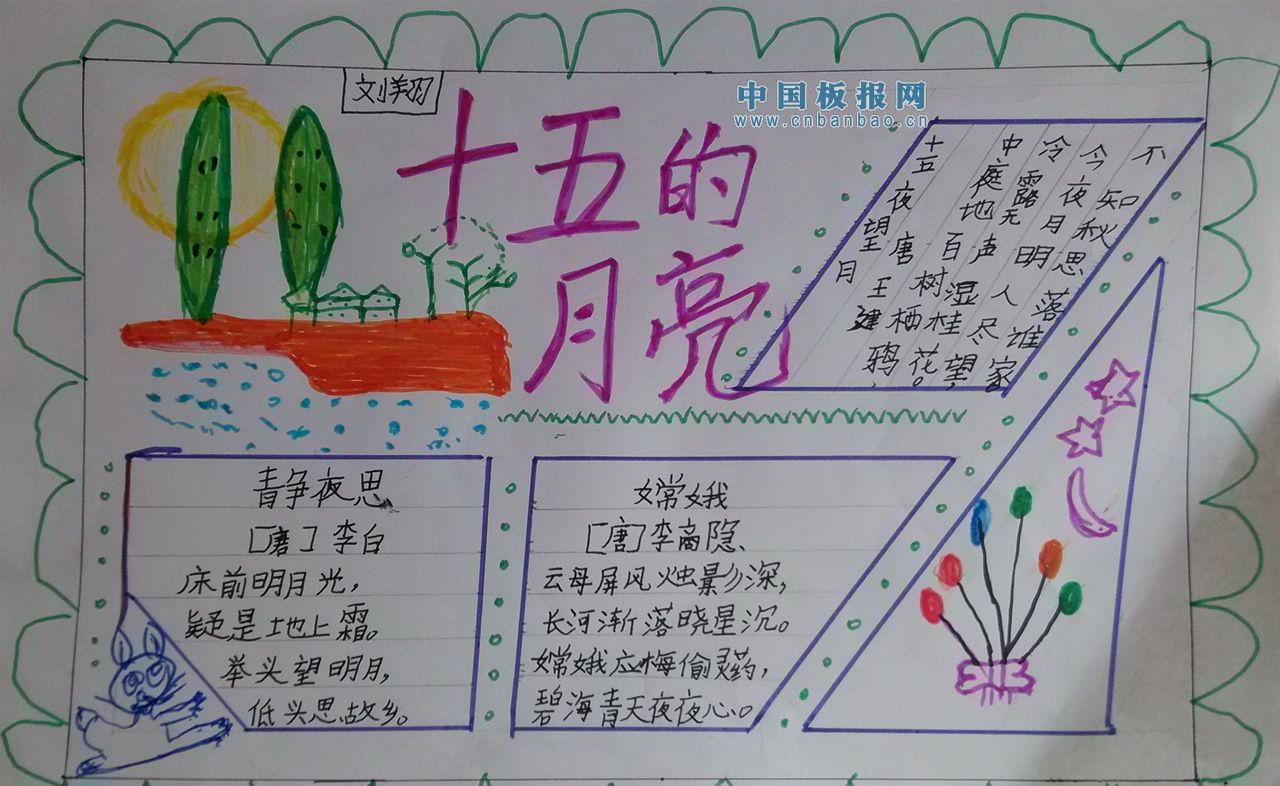 刘翔
中国板报网
www.cnbanbao.cn
十五的
月亮
十五夜望月
唐王建
中庭地百树栖鸦,
冷露无声湿桂花。
今夜月明人尽望,
不知秋思落谁家
静夜思
[唐]李白
床前明月光,
疑是地上霜。
举头望明月,
低头思故乡。
嫦娥
[唐]李商隐、
云母屏风烛影深,
长河渐落晓星沉。
嫦娥应悔偷灵药,
碧海青天夜夜心。